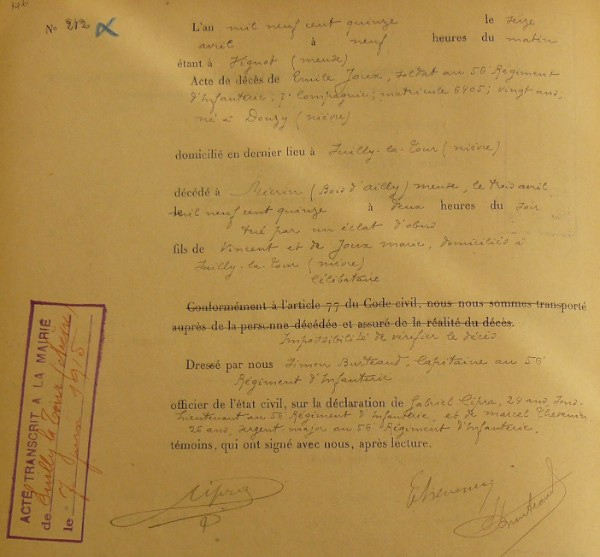 No 212
L'an mil neuf cent quinze le seize
avril à neuf heures du matin
étant à Vignot (meuse)
Acte de décès de Emile Joux, soldat au 56 Régiment
d'Infanterie, 7e Compagnie; matricule 6905; vingt ans,
né à Donzy (nièvre)
domicilié en dernier lieu à Suilly-la-Tour (nièvre)
décédé à (Bois d'Ailly) meuse, le trois avril
mil neuf cent quinze à deux heures du soir
tué par un éclat d'obus
fils de Vincent et de Joux marie, domiciliés à
Suilly-la-Tour (nièvre)
Célibataire
Conformément à l'article 77 du Code civil, nous nous sommes transporté
auprès de la personne décédée et assuré de la réalité du décès.
Impossibilité de vérifier le décès
Dressé par nous Simon Burteaud, Capitaine au 56e
Régiment d'Infanterie
officier de l'état civil, sur la déclaration de Gabriel Cipra, 29 ans, Sous-
Lieutenant au 56 Régiment d'Infanterie, et de marcel Thevenin
25 ans, sergent major au 56 Régiment d'Infanterie,
témoins, qui ont signé avec nous, après lecture.
Cipra
Thevenin
Burteaud
ACTE TRANSCRIT A LA MAIRIE
de Suilly la Tour (Nièvre)
le 7 Juin 1915